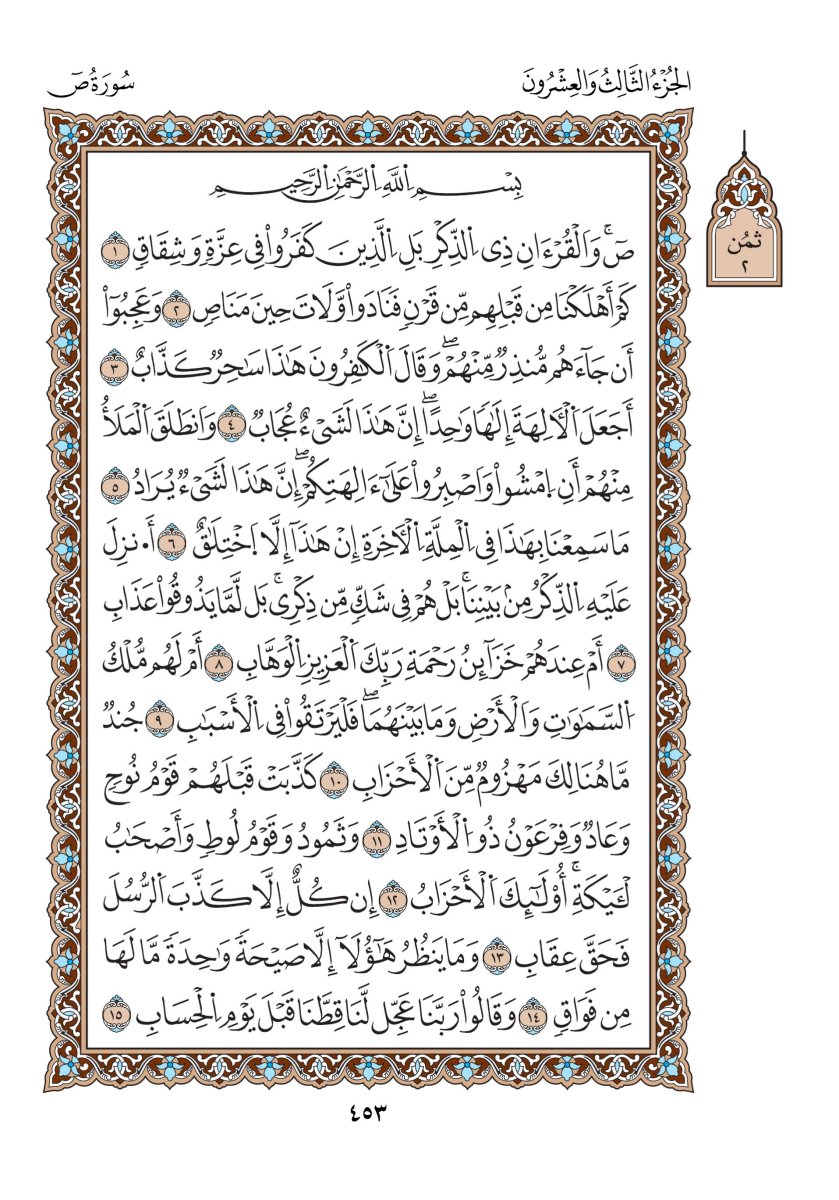 الجُزْءُ الثَّالِثُ وَالعِشْرُونَ
سُورَةُ صٓ
ثمُن
٢
بِسْمِ اِللَّهِ اِلرَّحْمَٰنِ اِلرَّحِيمِ
صٓۚ وَاَلْقُرْءَانِ ذِى اِلذِّكْرِ بَلِ اِلَّذِينَ كَفَرُواْ فِى عِزَّةٖ وَشِقَاقٖ ١
كَمْ أَهْلَكْنَا مِن قَبْلِهِم مِّن قَرْنٖ فَنَادَواْ وَّلَاتَ حِينَ مَنَاصٖ ٢ وَعَجِبُوٓاْ
أَن جَآءَهُم مُّنذِرٞ مِّنْهُمْۖ وَقَالَ اَلْكَٰفِرُونَ هَٰذَا سَٰحِرٞ كَذَّابٌ ٣
أَجَعَلَ اَلْأٓلِهَةَ إِلَٰهٗا وَٰحِدًاۖ إِنَّ هَٰذَا لَشَىْءٌ عُجَابٞ ٤ وَاَنطَلَقَ اَلْمَلَأُ
مِنْهُمْ أَنِ اِمْشُواْ وَاَصْبِرُواْ عَلَىٰٓ ءَالِهَتِكُمْۖ إِنَّ هَٰذَا لَشَىْءٞ يُرَادُ ٥
مَا سَمِعْنَا بِهَٰذَا فِى اِلْمِلَّةِ اِلْأٓخِرَةِ إِنْ هَٰذَآ إِلَّا اَخْتِلَٰقٌ ٦ أَ•نزِلَ
عَلَيْهِ اِلذِّكْرُ مِنۢ بَيْنِنَاۚ بَلْ هُمْ فِى شَكّٖ مِّن ذِكْرِىۚ بَل لَّمَّا يَذُوقُواْ عَذَابِ
٧ أَمْ عِندَهُمْ خَزَآئِنُ رَحْمَةِ رَبِّكَ اَلْعَزِيزِ اِلْوَهَّابِ ٨ أَمْ لَهُم مُّلْكُ
اُلسَّمَٰوَٰتِ وَاَلْأَرْضِ وَمَا بَيْنَهُمَاۖ فَلْيَرْتَقُواْ فِى اِلْأَسْبَٰبِ ٩ جُندٞ
مَّا هُنَالِكَ مَهْزُومٞ مِّنَ اَلْأَحْزَابِ ١٠ كَذَّبَتْ قَبْلَهُمْ قَوْمُ نُوحٖ
وَعَادٞ وَفِرْعَوْنُ ذُو اُلْأَوْتَادِ ١١ وَثَمُودُ وَقَوْمُ لُوطٖ وَأَصْحَٰبُ
لْـَٔيْكَةِۚ أُوْلَٰٓئِكَ اَلْأَحْزَابُ ١٢ إِن كُلٌّ إِلَّا كَذَّبَ اَلرُّسُلَ
فَحَقَّ عِقَابِ ١٣ وَمَا يَنظُرُ هَٰٓؤُلَآ إِلَّا صَيْحَةٗ وَٰحِدَةٗ مَّا لَهَا
مِن فَوَاقٖ ١٤ وَقَالُواْ رَبَّنَا عَجِّل لَّنَا قِطَّنَا قَبْلَ يَوْمِ اِلْحِسَابِ ١٥
٤٥٣